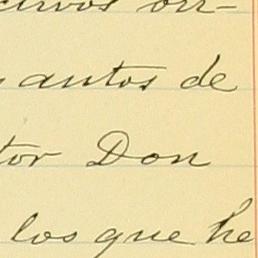 autos de
tor Don
los que he